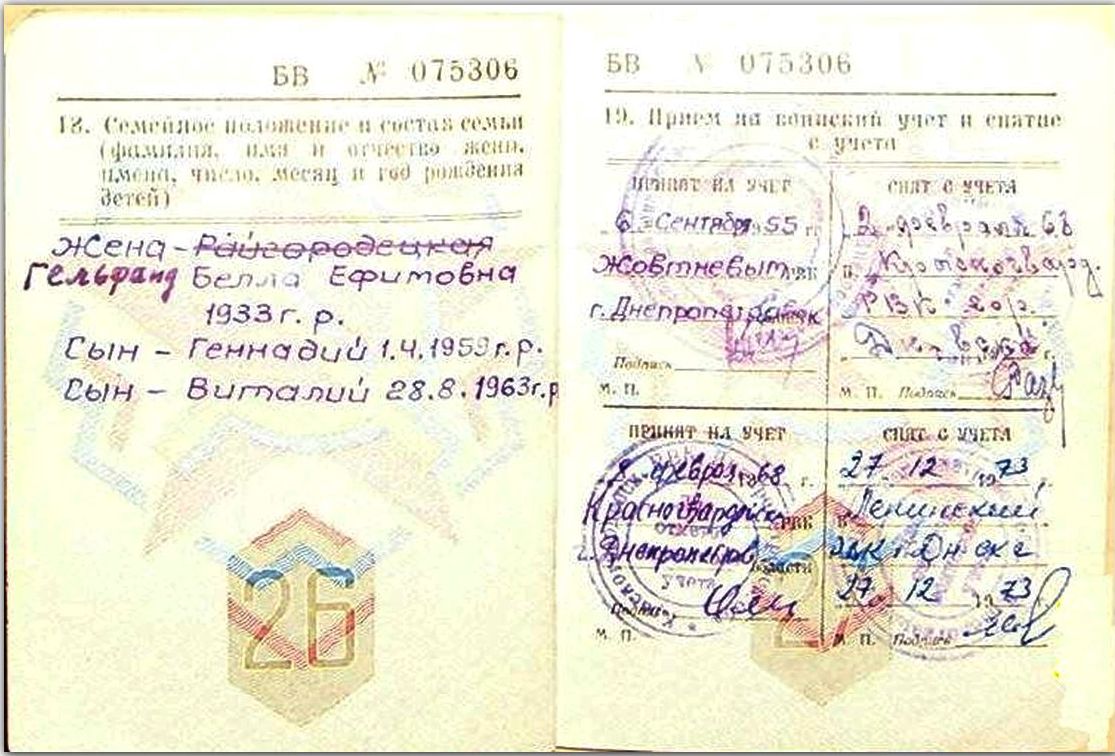 БВ № 075306
18. Семейное положение и состав семьи
(фамилия, имя и отчество жены,
имена, число, месяц и год рождения
детей)
Жена - Райгородецкая
Гельфанд Белла Ефимовна
1933 г. р.
Сын - Геннадий 1.4.1959 г. р.
Сын - Виталий 28.8.1963 г. р
26
БВ № 075306
19. Прием на воинский учет и снятие
с учета
ПРИНЯТ НА УЧЕТ
6 Сентября 55 г.
Жовтневым РВК
г. Днепропетровск
Подпись
М. П.
СНЯТ С УЧЕТА
2 февраля 68
в Красногвард.
РВК гор.
М. П. Подпись
ПРИНЯТ НА УЧЕТ
февраля 1968 г.
Красногвардейск РВК
г. Днепропетров области
Подпись
М. П.
СНЯТ С УЧЕТА
27 12 1973
в Ленинский
27 12 1973
М. П. Подпись